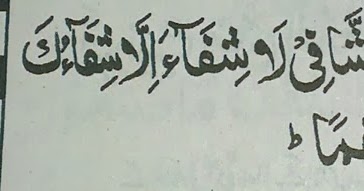 شَّافِیْ لَا شِفَآءَ اِلَّا شِفَآؤُكَ